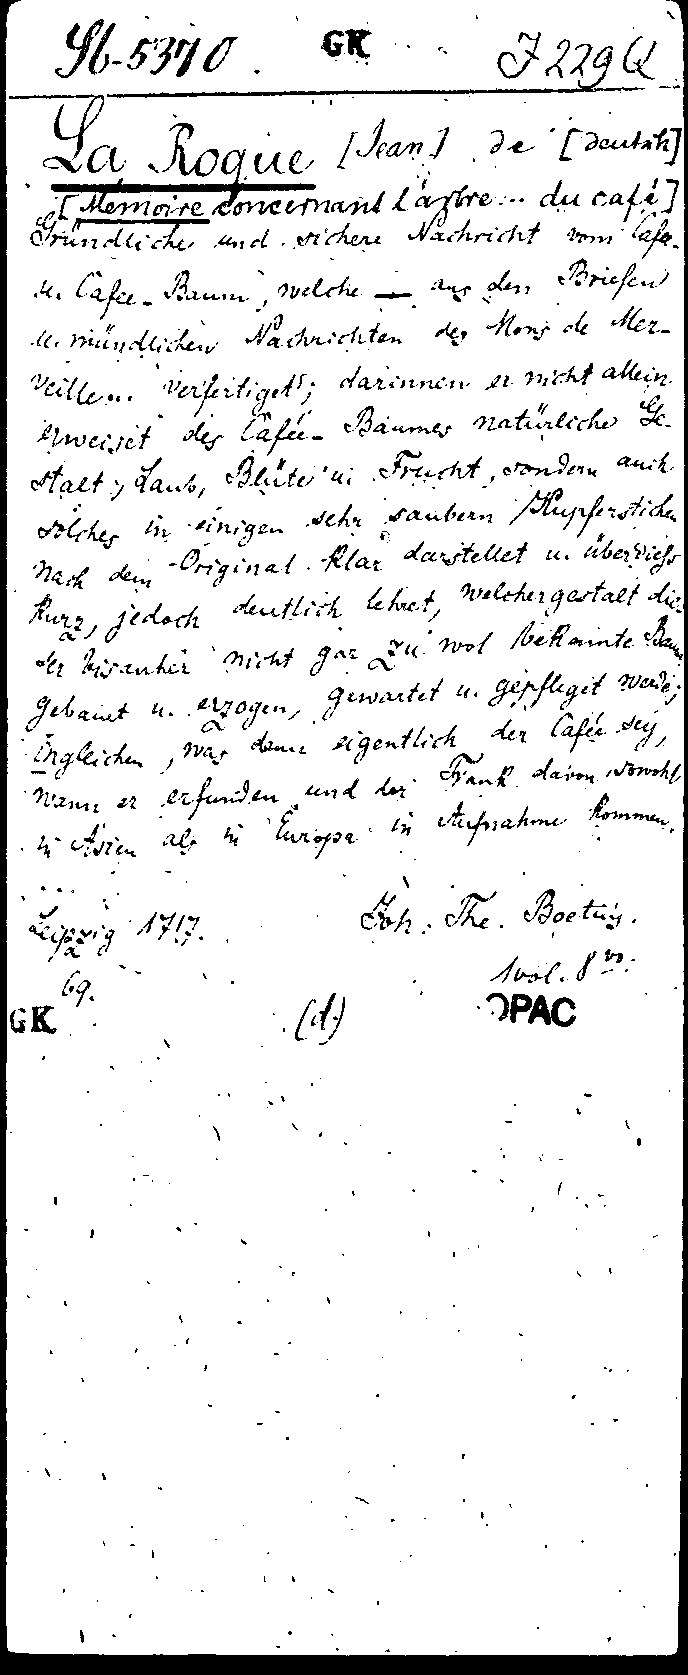 Sb-5370 GK J 229 Q
La Roque [Jean] de [deutsch]
[Mémoire concernant l'arbre... du café]
Gründliche und sichere Nachricht vom Cafee-
u. Cafee-Baum, welche — aus den Briefen
u. mündlichen Nachrichten des Mons de Mer-
veille... verfertiget; darinnen er nicht allein
erweiset des Cafée-Baumes natürliche Ge-
stalt, Laub, Blüte u. Frucht, sondern auch
solches in einigen sehr saubern Kupferstichen
nach dem Original klar darstellet u. überdiess
kurz, jedoch deutlich lehret, welchergestalt die-
ser bisanher nicht gar zu wol bekannte Baum
gebauet u. erzogen, gewartet u. gepfleget werde;
ingleichen, was denn eigentlich der Cafée sey,
wann er erfunden und der Trank davon sowohl
in Asien als in Europa in Aufnahme kommen.
...
Leipzig 1717. Joh. The. Boetius.
69. 1 vol. 8vo.
GK (d.) OPAC